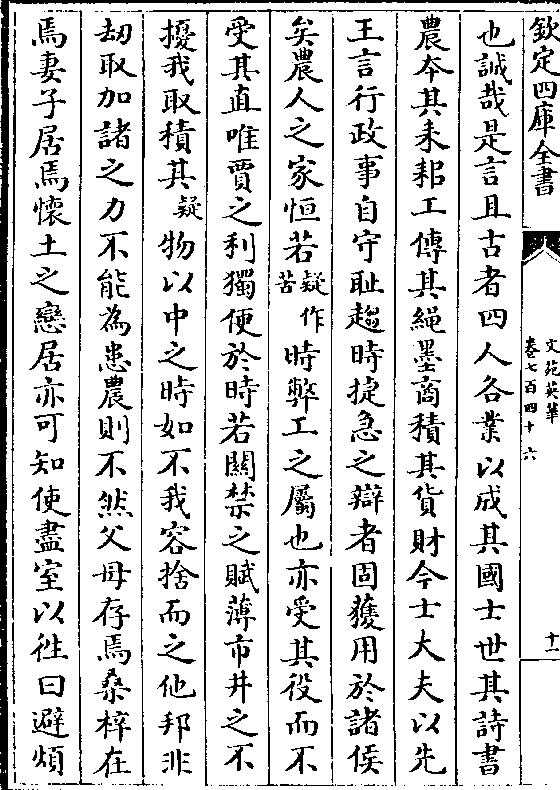 欽定四庫全書
文苑英華
卷七百四十六
十一
也誠哉是言且古者四人各業以成其國士世其詩書
農夲其耒耜工傳其繩墨商積其貨財今士大夫以先
王言行政事自守耻趨時捷急之辯者固獲用於諸侯
矣農人之家恒若疑作苦時弊工之屬也亦受其役而不
受其直唯賈之利獨便於時若關禁之賦薄市井之不
擾我取積其疑物以中之時如不我容捨而之他邦非
刼取加諸之力不能為患農則不然父母存焉桑梓在
焉妻子居焉懷土之戀居亦可知使盡室以徃曰避煩